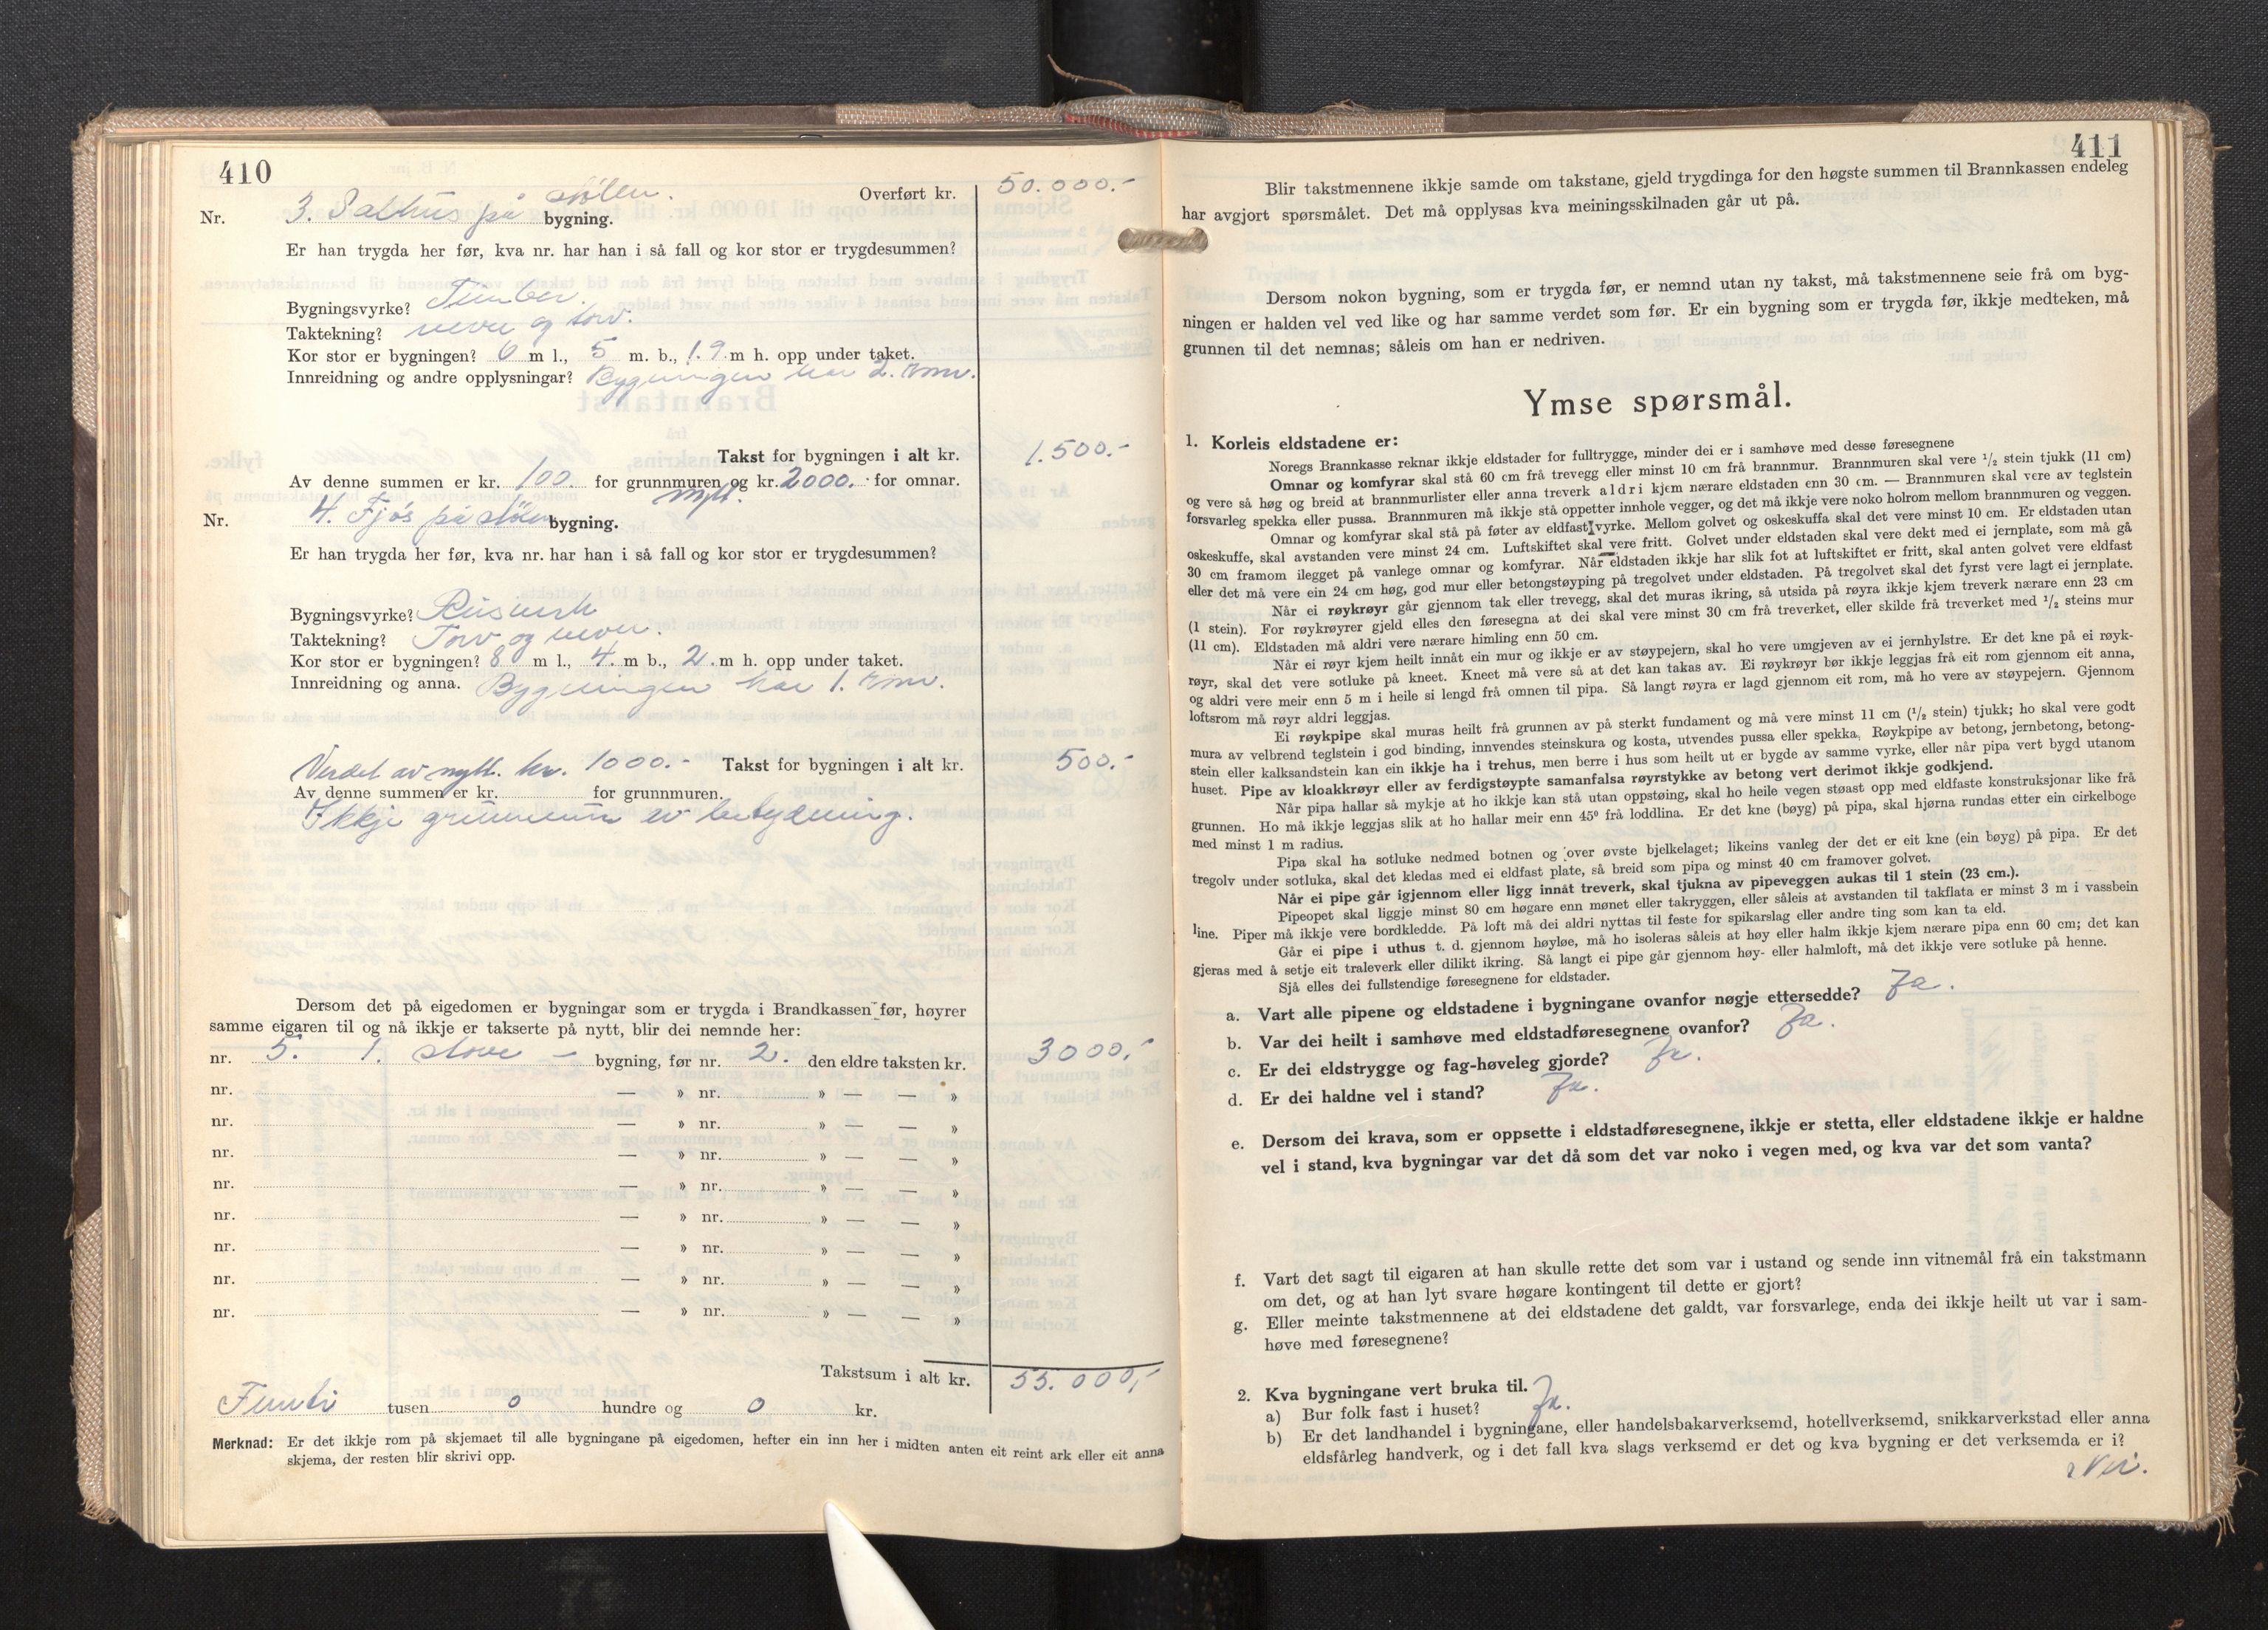 410
Overført kr. 50.000.-
Nr. 3. Salhus på stölen. bygning.
Er han trygda her før, kva nr. har han i så fall og kor stor er trygdesummen?
Bygningsvyrke? Timber.
Taktekning? never og torv.
Kor stor er bygningen? 6 m l., 5 m. b., 1.9 m h. opp under taket.
Innreidning og andre opplysningar? Bygningen har 2. rom.
Takst for bygningen i alt kr. 1.500.-
Av denne summen er kr. 100 for grunnmuren og kr. 2000. for omnar.
nytt.
Nr. 4. Fjós på stölen bygning.
Er han trygda her før, kva nr. har han i så fall og kor stor er trygdesummen?
Bygningsvyrke? Reisverk
Taktekning? Torv og never.
Kor stor er bygningen? 8 m l., 4. m b., 2. m h. opp under taket.
Innreidning og anna. Bygningen har 1. rom.
Verdet av nytt. kr. 1000.- Takst for bygningen i alt kr. 500.-
Av denne summen er kr. for grunnmuren.
Ikkje grunnmur av betydning.
Dersom det på eigedomen er bygningar som er trygda i Brandkassen før, høyrer
samme eigaren til og nå ikkje er takserte på nytt, blir dei nemnde her:
nr. 5. 1. stove - bygning, før nr. 2. den eldre taksten kr. 3000,-
nr. — » nr. » — — »
nr. — » nr. » — — »
nr. — » nr. » — — »
nr. — » nr. » — — »
nr. — » nr. » — — »
nr. — » nr. » — — »
nr. — » nr. » — — »
nr. — » nr. » — — »
Takstsum i alt kr. 55.000,-
Femti tusen 0 hundre og 0 kr.
Merknad: Er det ikkje rom på skjemaet til alle bygningane på eigedomen, hefter ein inn her i midten anten eit reint ark eller eit anna
skjema, der resten blir skrivi opp.
411
Blir takstmennene ikkje samde om takstane, gjeld trygdinga for den høgste summen til Brannkassen endeleg
har avgjort spørsmålet. Det må opplysas kva meiningsskilnaden går ut på.
Dersom nokon bygning, som er trygda før, er nemnd utan ny takst, må takstmennene seie frå om byg-
ningen er halden vel ved like og har samme verdet som før. Er ein bygning som er trygda før, ikkje medteken, må
grunnen til det nemnas; såleis om han er nedriven.
Ymse spørsmål.
1. Korleis eldstadene er:
Noregs Brannkasse reknar ikkje eldstader for fulltrygge, minder dei er i samhøve med desse føresegnene
Omnar og komfyrar skal stå 60 cm frå trevegg eller minst 10 cm frå brannmur. Brannmuren skal vere ½ stein tjukk (11 cm)
og vere så høg og breid at brannmurlister eller anna treverk aldri kjem nærare eldstaden enn 30 cm. — Brannmuren skal vere av teglstein
forsvarleg spekka eller pussa. Brannmuren må ikkje stå oppetter innhole vegger, og det må ikkje vere noko holrom mellom brannmuren og veggen.
Omnar og komfyrar skal stå på føter av eldfast vyrke. Mellom golvet og oskeskuffa skal det vere minst 10 cm. Er eldstaden utan
oskeskuffe, skal avstanden vere minst 24 cm. Luftskiftet skal vere fritt. Golvet under eldstaden skal vere dekt med ei jernplate, som må gå
30 cm framom ilegget på vanlege omnar og komfyrar. Når eldstaden ikkje har slik fot at luftskiftet er fritt, skal anten golvet vere eldfast
eller det må vere ein 24 cm høg, god mur eller betongstøyping på tregolvet under eldstaden. På tregolvet skal det fyrst vere lagt ei jernplate.
Når ei røykrøyr går gjennom tak eller trevegg, skal det muras ikring, så utsida på røyra ikkje kjem treverk nærare enn 23 cm
(1 stein). For røykrøyrer gjeld elles den føresegna at dei skal vere minst 30 cm frå treverket, eller skilde frå treverket med ½ steins mur
(11 cm). Eldstaden må aldri vere nærare himling enn 50 cm.
Når ei røyr kjem heilt innåt ein mur og ikkje er av støypejern, skal ho vere umgjeven av ei jernhylstre. Er det kne på ei røyk-
røyr, skal det vere sotluke på kneet. Kneet må vere så at det kan takas av. Ei røykrøyr bør ikkje leggjas frå eit rom gjennom eit anna,
og aldri vere meir enn 5 m i heile si lengd frå omnen til pipa. Så langt røyra er lagd gjennom eit rom, må ho vere av støypejern. Gjennom
loftsrom må røyr aldri leggjas.
Ei røykpipe skal muras heilt frå grunnen av på sterkt fundament og må vere minst 11 cm (½ stein) tjukk; ho skal vere godt
mura av velbrend teglstein i god binding, innvendes steinskura og kosta, utvendes pussa eller spekka. Røykpipe av betong, jernbetong, betong-
stein eller kalksandstein kan ein ikkje ha i trehus, men berre i hus som heilt ut er bygde av samme vyrke, eller når pipa vert bygd utanom
huset. Pipe av kloakkrøyr eller av ferdigstøypte samanfalsa røyrstykke av betong vert derimot ikkje godkjend.
Når pipa hallar så mykje at ho ikkje kan stå utan oppstøing, skal ho heile vegen støast opp med eldfaste konstruksjonar like frå
grunnen. Ho må ikkje leggjas slik at ho hallar meir enn 45° frå loddlina. Er det kne (bøyg) på pipa, skal hjørna rundas etter ein cirkelboge
med minst 1 m radius.
Pipa skal ha sotluke nedmed botnen og over øvste bjelkelaget; likeins vanleg der det er eit kne (ein bøyg) på pipa. Er det
tregolv under sotluka, skal det kledas med ei eldfast plate, så breid som pipa og minst 40 cm framover golvet.
Når ei pipe går igjennom eller ligg innåt treverk, skal tjukna av pipeveggen aukas til 1 stein (23 cm.).
Pipeopet skal liggje minst 80 cm høgare enn mønet eller takryggen, eller såleis at avstanden til takflata er minst 3 m i vassbein
line. Piper må ikkje vere bordkledde. På loft må dei aldri nyttas til feste for spikarslag eller andre ting som kan ta eld.
Går ei pipe i uthus t. d. gjennom høyløe, må ho isoleras såleis at høy eller halm ikkje kjem nærare pipa enn 60 cm; det kan
gjeras med å setje eit traleverk eller dilikt ikring. Så langt ei pipe går gjennom høy- eller halmloft, må det ikkje vere sotluke på henne.
Sjå elles dei fullstendige føresegnene for eldstader.
a. Vart alle pipene og eldstadene i bygningane ovanfor nøgje ettersedde? Ja.
b. Var dei heilt i samhøve med eldstadføresegnene ovanfor? Ja.
c. Er dei eldstrygge og fag-høveleg gjorde? Ja.
d. Er dei haldne vel i stand? Ja.
e. Dersom dei krava, som er oppsette i eldstadføresegnene, ikkje er stetta, eller eldstadene ikkje er haldne
vel i stand, kva bygningar var det då som det var noko i vegen med, og kva var det som vanta?
f. Vart det sagt til eigaren at han skulle rette det som var i ustand og sende inn vitnemål frå ein takstmann
om det, og at han lyt svare høgare kontingent til dette er gjort?
g. Eller meinte takstmennene at dei eldstadene det galdt, var forsvarlege, enda dei ikkje heilt ut var i sam-
høve med føresegnene?
2. Kva bygningane vert bruka til.
a) Bur folk fast i huset? Ja.
b) Er det landhandel i bygningane, eller handelsbakarverksemd, hotellverksemd, snikkarverkstad eller anna
eldsfårleg handverk, og i det fall kva slags verksemd er det og kva bygning er det verksemda er i?
Nei.